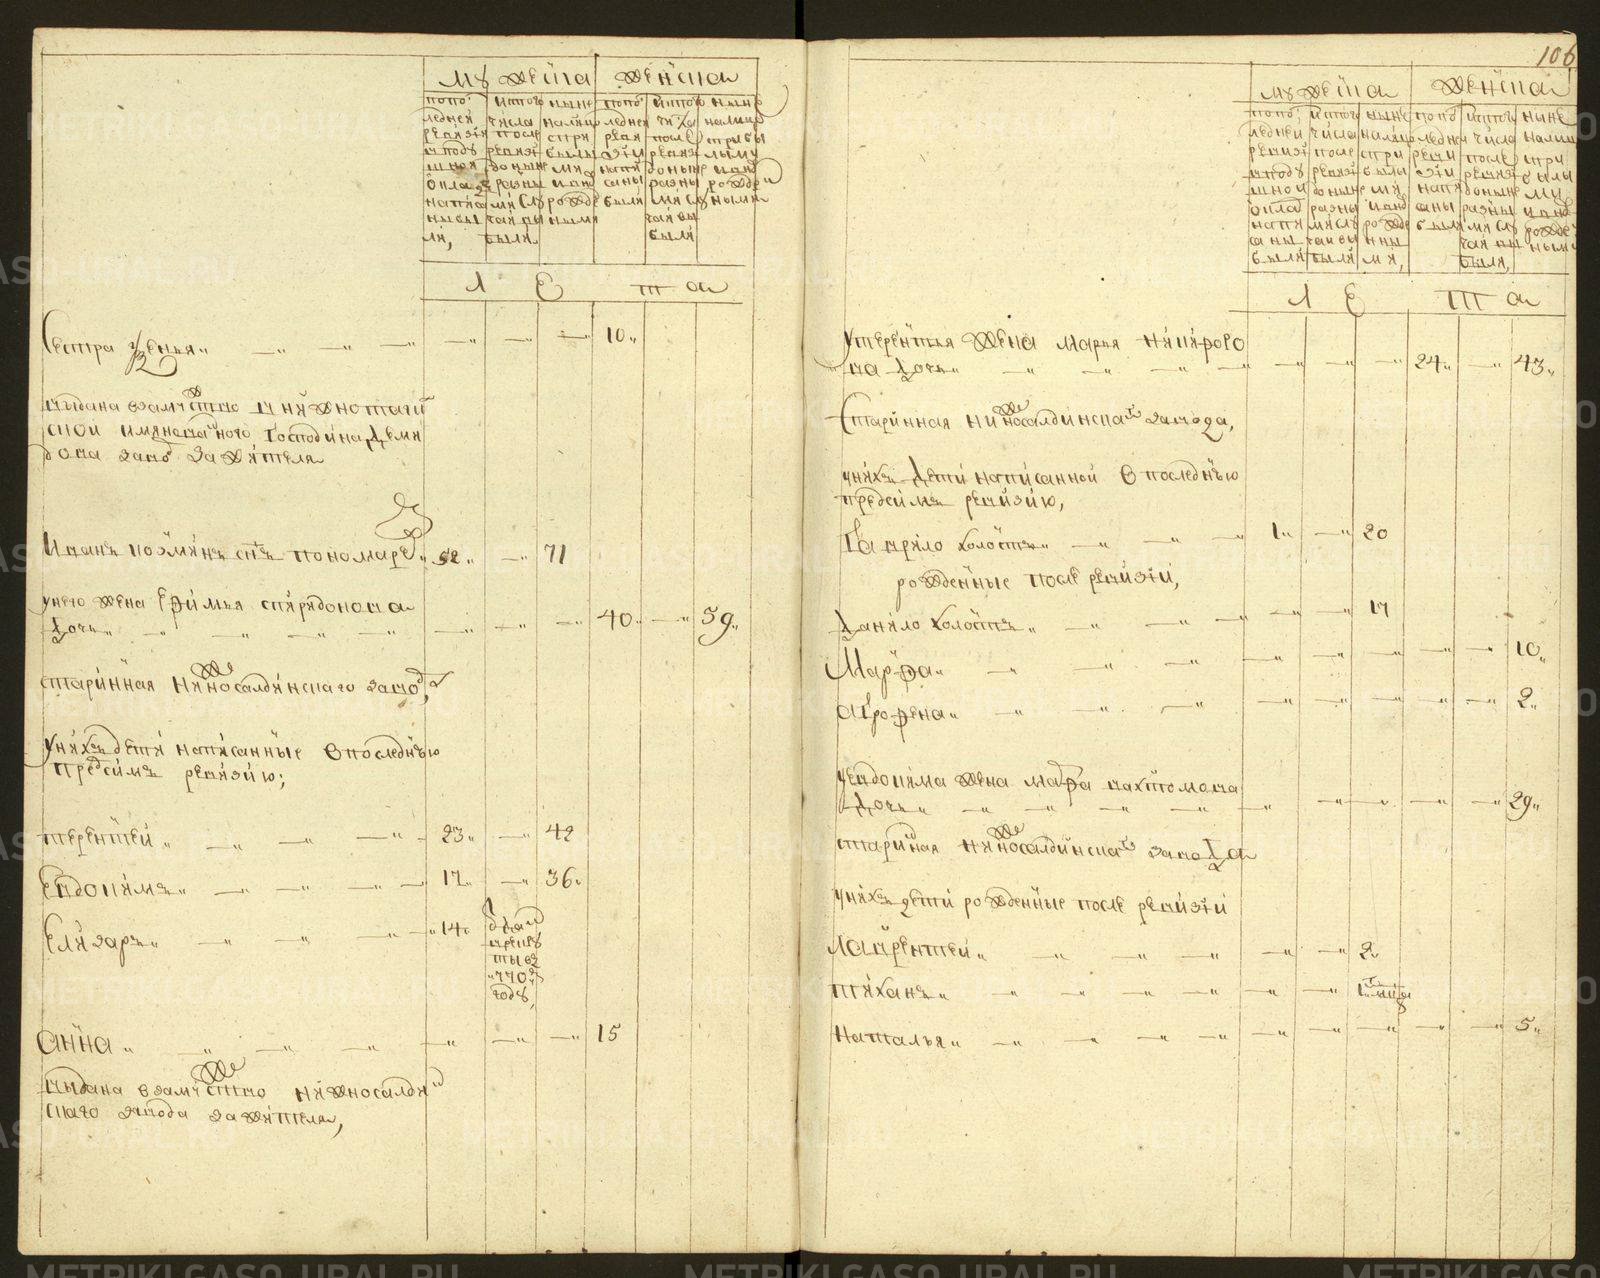 106
мужеска женска
попо следней ревизии и подушной окладъ написаны были,
и ис того числа после ревизии доныне разны ми случаи вы были
ныне налицо с при былыми и внов рожде нными
попо следней реви зии напи саны были
и ис того числа после ревизи доныне разны ми слу чаи вы были
ныне налицо с при былыми и внов рожде ными
Л Е Т А
Сестра Ксенья „ — „ — „ — „ — „ — „ — „ 10 „
выдана взамужство в нижнотагил
ской
Господина Деми
дова завод за жителя
Иванъ Козминъ снъ Пономаре „ 52 „ — „ 71
у него жена Ефимья Спиридонова
дочь „ — „ — „ — „ — „ — „ — „ — „ 40 „ — „ 59 „
старинная нижносалдинскаго завода,
у нихъ дети написанные в последнюю
пред симъ ревизию;
терентей „ — „ — „ — „ 23 „ — „ 42
Евдокимъ „ — „ — „ — „ 17 „ — „ 36 „
Елизаръ „ — „ — „ — „ 14 „ отдан в рекруты в 770 м году,
Анна „ — „ — „ — „ — „ — „ — „ 15
выдана в замужство нижносалдин
скаго завода за жителя,
мужеска женска
попо следней ревизи и подушной оклад написа ны были
и ис того числа после ревизи доныне разны ми слу чаи вы были
ныне налицо с при былы ми и внов рожде нны ми,
попо следней реви зии напи саны были
и ис того числа после ревизи доныне разны ми слу чаи вы были,
ныне налицо с при былы ми и внов рожде ными
Л Е Т А
у терентья жена Марья Никифоро
ва дочь „ — „ — „ — „ — „ — „ — „ — „ 24 „ — „ 43 „
Старинная нижносалдинскаго завода,
у нихъ дети написанной в последнюю
пред симъ ревизию,
Гаврило холостъ „ — „ — „ — „ 1 „ — „ 20
рожденные после ревизии,
Данило холостъ „ — „ — „ — „ — „ — „ 17
Марфа „ — „ — „ — „ — „ — „ — „ — „ — „ 10 „
агрофена „ — „ — „ — „ — „ — „ — „ — „ — „ 2 „
у евдокима жена марфа вахромова
дочь „ — „ — „ — „ — „ — „ — „ — „ — „ — „ 29 „
стариная нижносалдинскаго завода
у нихъ дети рожденные после ревизии
лаврентей „ — „ — „ — „ — „ — „ 2 „
тиханъ „ — „ — „ — „ — „ — „ — „
Наталья „ — „ — „ — „ — „ — „ — „ — „ — „ — „ 5 „
METRIKI.GASO-URAL.RU